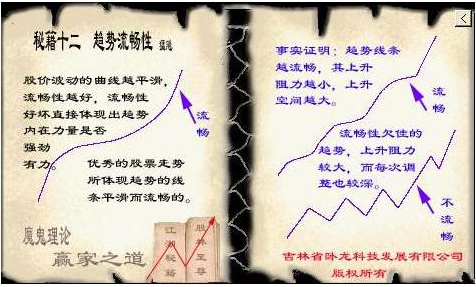 秘籍十二 趋势流畅性
股价波动的曲线越平滑，
流畅性越好，流畅性
好坏直接体现出趋势
内在力量是否
强劲
有力。
优秀的股票走势
所体现趋势的线
条平滑而流畅的。
流
畅
魔鬼理论
赢家之道
江湖秘籍
股林至尊
事实证明：趋势线条
越流畅，其上升
阻力越小，上升
空间越大。
流
畅
流畅性欠佳的
趋势，上升阻力
较大，而每次调
整也较深。
不
流
畅
吉林省卧龙科技发展有限公司
版权所有